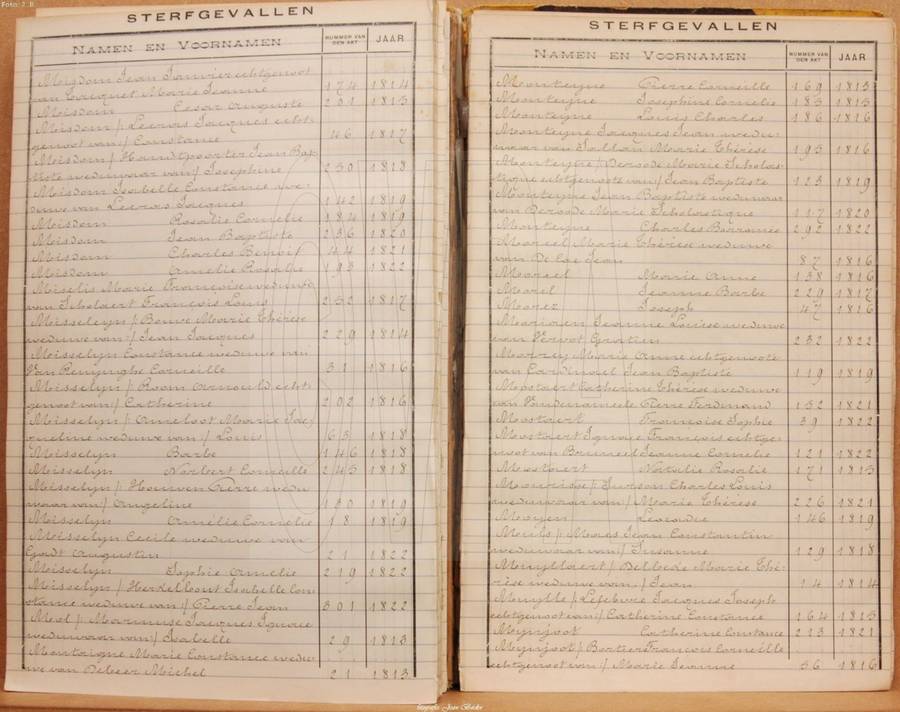 Foto: J. B
STERFGEVALLEN
NAMEN EN VOORNAMEN NUMMER VAN DEN AKT JAAR
Misdom Jean Janvier echtgenoot
van Cacquet Marie Jeanne 174 1814
Misdom Cesar Auguste 231 1815
Misdom / Lecras Jacques echt-
genoot van / Constance 46 1817
Misdom / Handtpoorter Jean Bap
tiste weduwaar van / Josephine 250 1818
Misdom Isabelle Constance we-
duwe van Lecras Jacques 142 1819
Misdom Rosalie Cornelie 184 1819
Misdom Jean Baptiste 236 1820
Misdom Charles Benoit 44 1821
Misdom Amelie Rosalie 193 1822
Miselis Marie Françoise weduwe
van Scholaert François Louis 252 1817
Misseleyn / Bouve Marie Thérèse
weduwe van / Jean Jacques 229 1814
Misselyn Constance weduwe van
Van Renynghe Corneille 31 1816
Misselyn / Room Arnould echt-
genoot van / Catherine 202 1816
Misselyn / Ameloot Marie Jac
queline weduwe van / Louis 63 1818
Misselyn Barbe 146 1818
Misselyn Norbert Corneille 245 1818
Misselyn / Houwen Pierre wedu
waar van / Angeline 130 1819
Misselyn Amélie Cornelie 18 1819
Misselyn Cecile weduwe van
Goudt Augustin 21 1822
Misselyn Sophie Amelie 219 1822
Misselyn / Herdelbout Isabelle Con
stance weduwe van / Pierre Jean 301 1822
Mol / Marannse Jacques Ignace
weduwaar van / Isabelle 29 1813
Montaigne Marie Constance wedu-
we van Debeer Michel 21 1813
STERFGEVALLEN
NAMEN EN VOORNAMEN NUMMER VAN DEN AKT JAAR
Monteyne Pierre Corneille 169 1815
Monteyne Josephine Cornelie 183 1815
Monteyne Louis Charles 186 1816
Monteyne Jacques Jean wedu-
waar van Marie Thérèse 195 1816
Monteyne / Dersode Marie Scholas
tique echtgenoote van / Jean Baptiste 123 1819
Monteyne Jean Baptiste weduwaar
van Dersode Marie Scholastique 117 1820
Monteyne Charles Barromée 292 1822
Moreel Marie Thérèse weduwe
van De Cae Jean 87 1816
Moreel Marie Anne 138 1816
Morel Jeanne Barbe 229 1817
Moerez Joseph 47 1816
Jeanne Louise weduwe
van Vervot Gratien 232 1822
Morey Marie Anne echtgenoote
van Cardinael Jean Baptiste 119 1819
Mostaert Catherine Thérèse weduwe
van Vandenameele Pierre Ferdinand 152 1821
Mostaert Françoise Sophie 39 1822
Mostaert Ignace François echtge-
noot van Bruneel Jeanne Cornelie 121 1822
Mostaert Natalie Rosalie 171 1815
Mourisse / Charles Louis
weduwaar van / Marie Thérèse 226 1821
Moyen Leocadie 146 1819
Meuls / Moraes Jean Constantin
weduwaar van / Susanne 129 1818
Muyllaert / Delbede Marie Thé-
rèse weduwe van / Jean 14 1814
Muylle / Lefebvre Jacques Joseph
echtgenoot van / Catherine Constance 164 1815
Mynjoot Catherine Constance 213 1821
Mynjoot / Bartier François Corneille
echtgenoot van / Marie Jeanne 56 1816